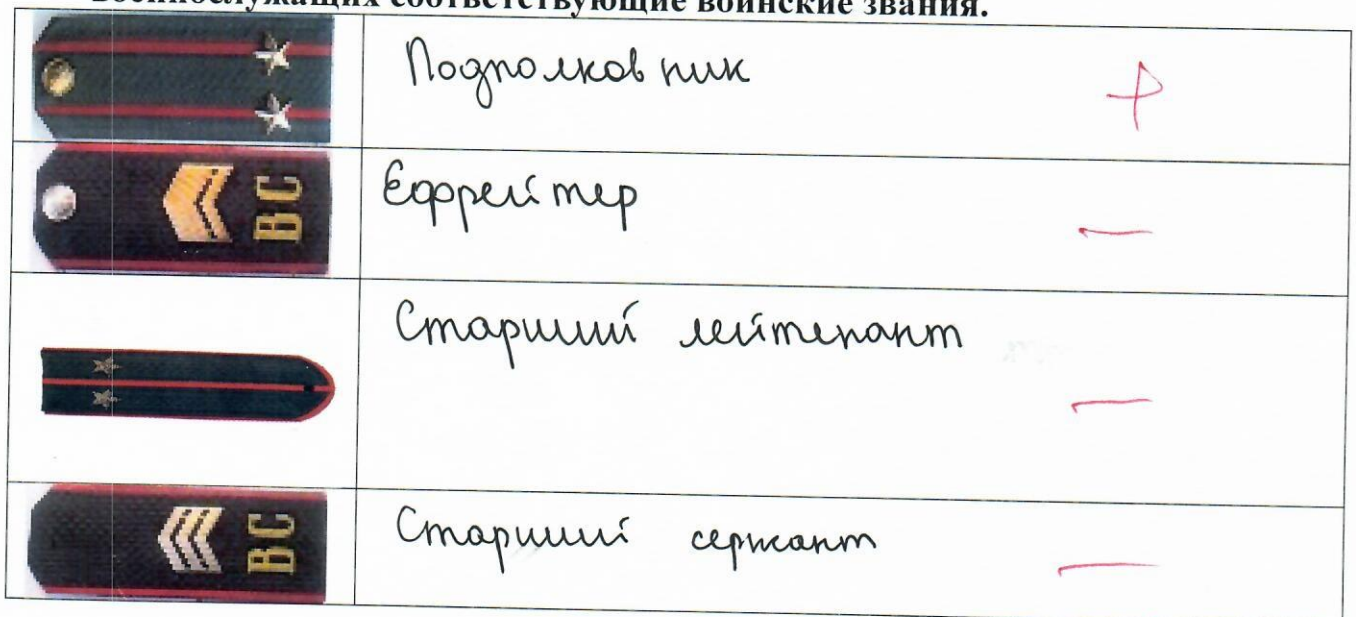 военнослужащих соответствующие воинские звания.
Подполковник +
ВС
Ефрейтер -
Старший лейтенант -
ВС
Старший сержант -